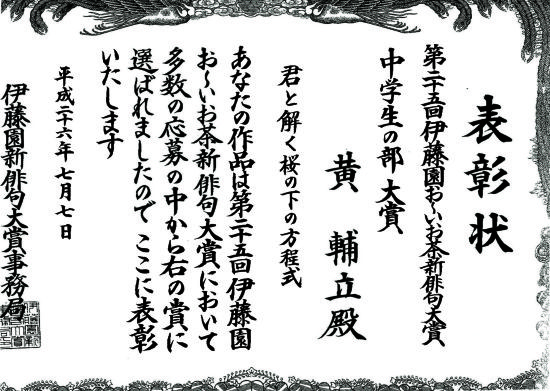 表彰状
第二十五回伊藤園おーいお茶新俳句大賞
中学生の部 大賞
黄 輔立殿
君と解く桜の下の方程式
あなたの作品は第二十五回伊藤園
おーいお茶新俳句大賞において
多数の応募の中から右の賞に
選ばれましたので ここに表彰
いたします
平成二十六年七月七日
伊藤園新俳句大賞事務局